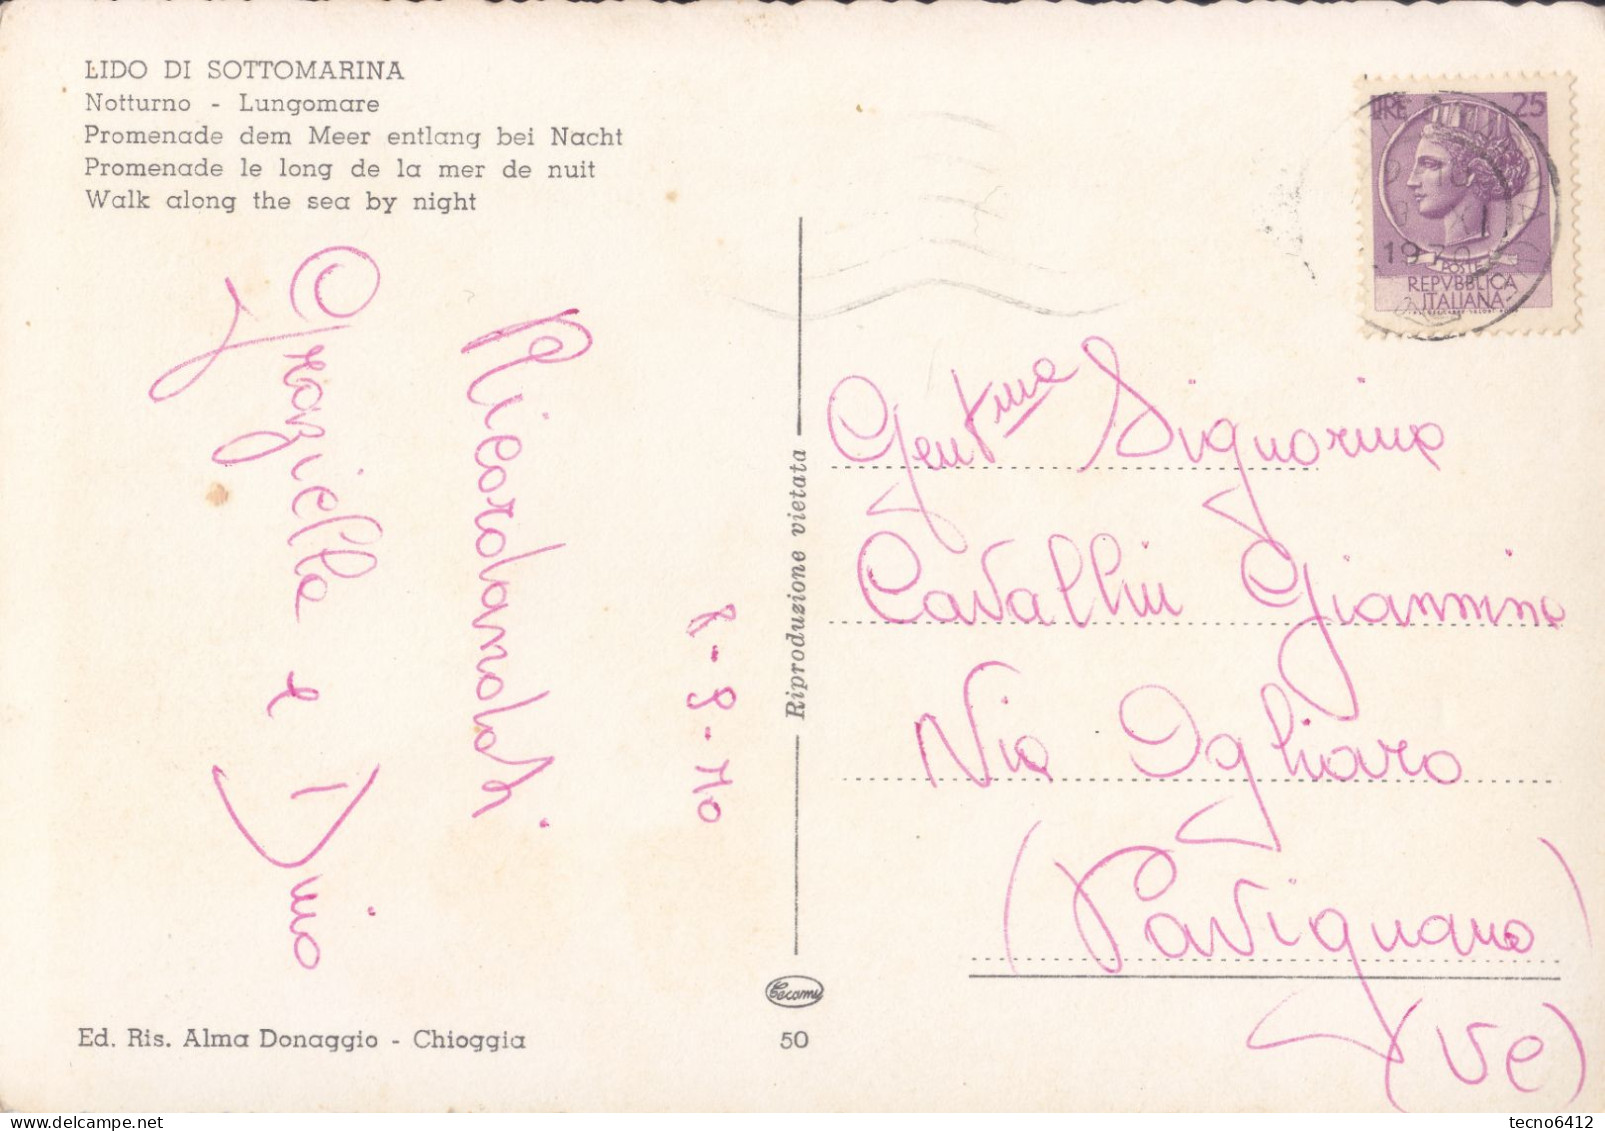 LIDO DI SOTTOMARINA
Notturno - Lungomare
Promenade dem Meer entlang bei Nacht
Promenade le long de la mer de nuit
Walk along the sea by night
Ricordandoti
Graziella e Dino
8-9-70
Riproduzione vietata
Cecami
50
Ed. Ris. Alma Donaggio - Chioggia
LIRE 25
1970
POSTE
REPVBBLICA
ITALIANA
Gent.ma Signorina
Cavallin Giannina
Via Igliaro
(Pavignano)
(Ve)
tecno6412